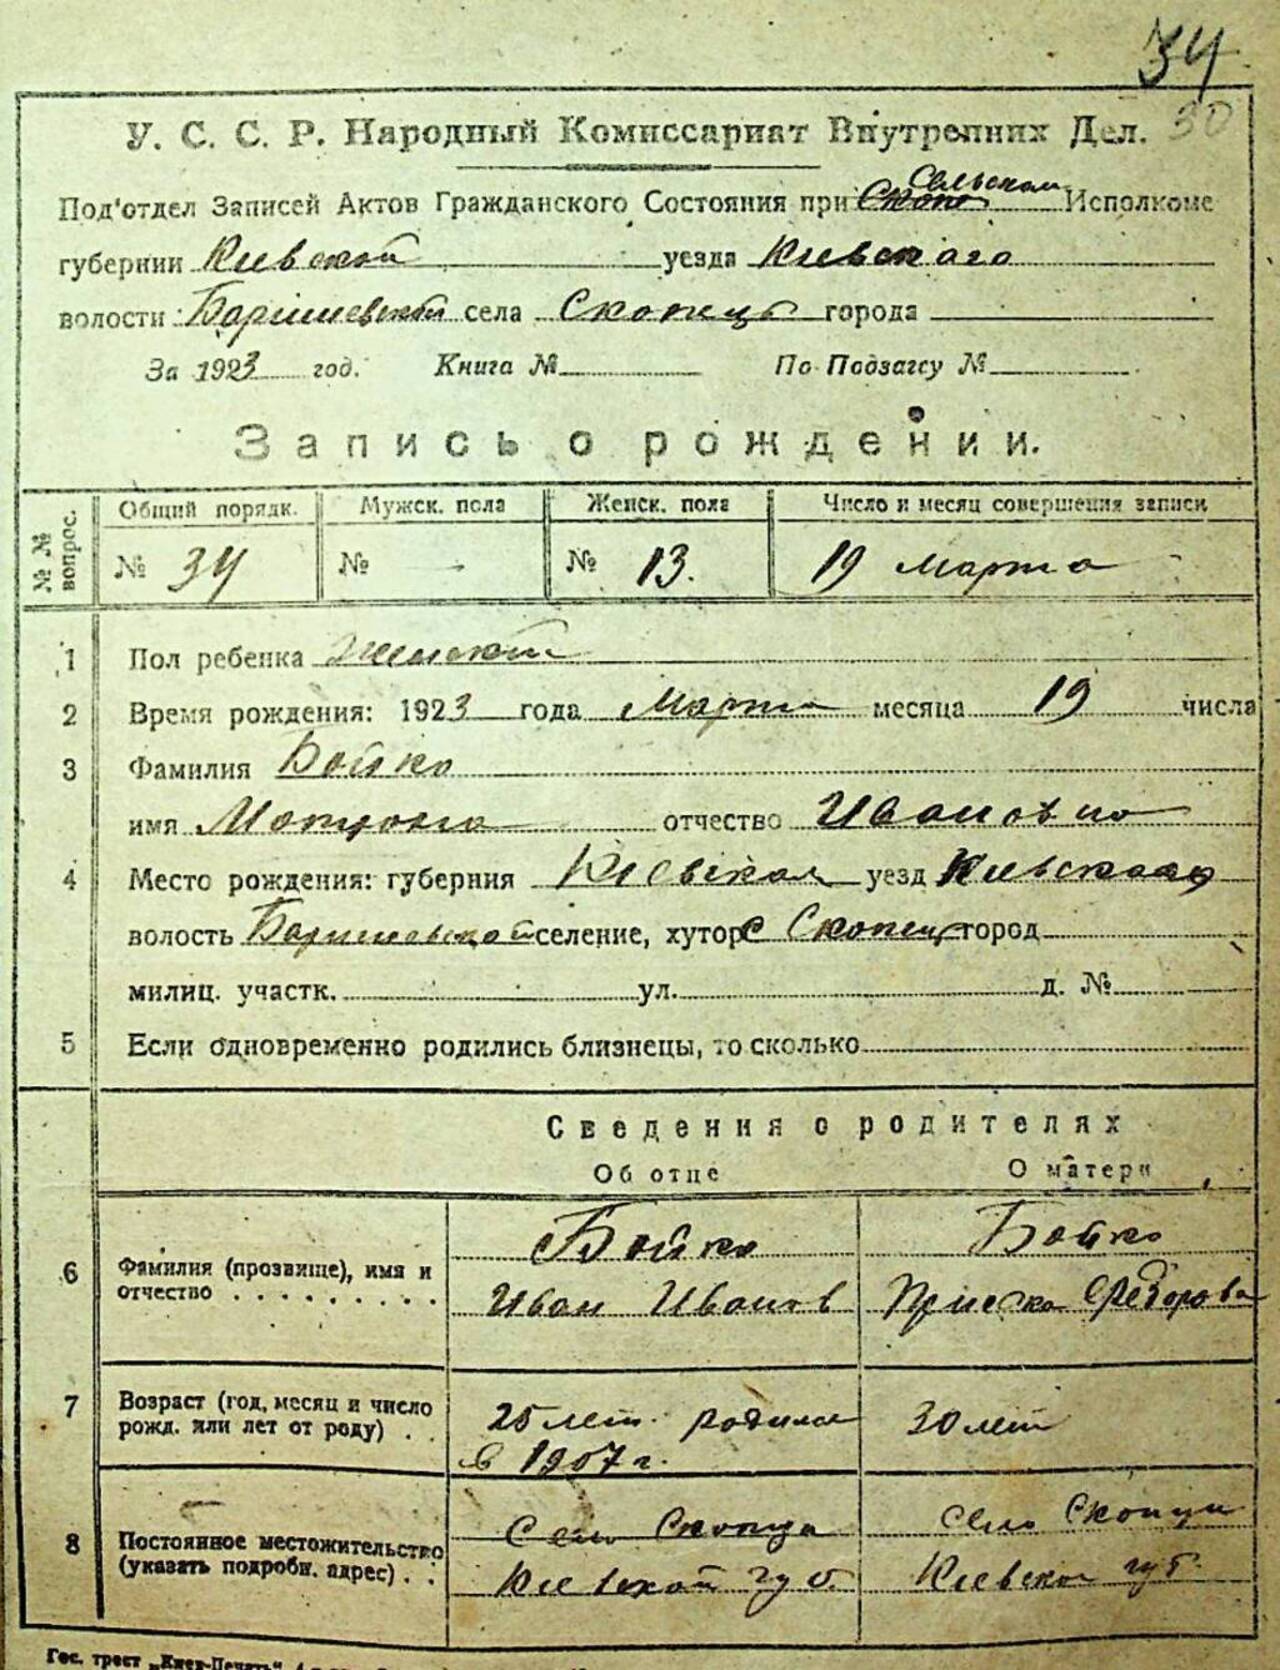 34
30
У. С. С. Р. Народный Комиссариат Внутренних Дел.
Под'отдел Записей Актов Гражданского Состояния при Сельском Исполкоме
губернии Киевской уезда Киевскаго
волости Баришевской села Скопцы города
За 1923 год. Книга № По Подзагсу №
Запись о рождении.
№ № вопрос. Общий порядк. Мужск. пола Женск. пола Число и месяц совершения записи
№ 34 № - № 13. 19 марта
1 Пол ребенка Женский
2 Время рождения: 1923 года Марта месяца 19 числа
3 Фамилия Бойко
имя Мотрона отчество Ивановно
4 Место рождения: губерния Киевская уезд Киевскаго
волость Баришевской селение, хутор с Скопцы город
милиц. участк. ул. д. №
5 Если одновременно родились близнецы, то сколько
Сведения о родителях
Об отце О матери
6 Фамилия (прозвище), имя и отчество . . . . . . . . . Бойко Иван Иванов Бойко Приська Федорова
7 Возраст (год, месяц и число рожд. или лет от роду) . . 25 лет родился в 1907 г. 30 лет
8 Постоянное местожительство (указать подробн. адрес) . . Село Скопцы Киевской губ. Село Скопци Киевской губ.
Гос. трест „Киев-Печать"